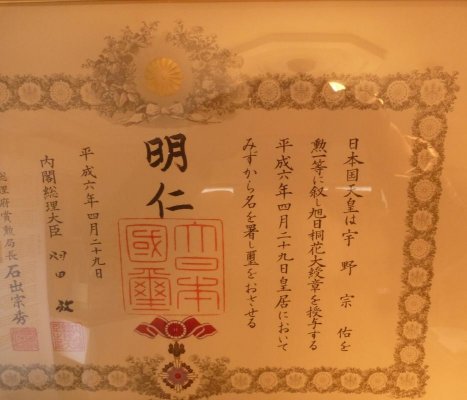 日本国天皇は宇野宗佑を
勲一等に叙し旭日桐花大綬章を授与する
平成六年四月二十九日皇居において
みずから名を署し璽をおさせる
明仁
大日本國璽
平成六年四月二十九日
内閣総理大臣 羽田孜
総理府賞勲局長 石出宗秀